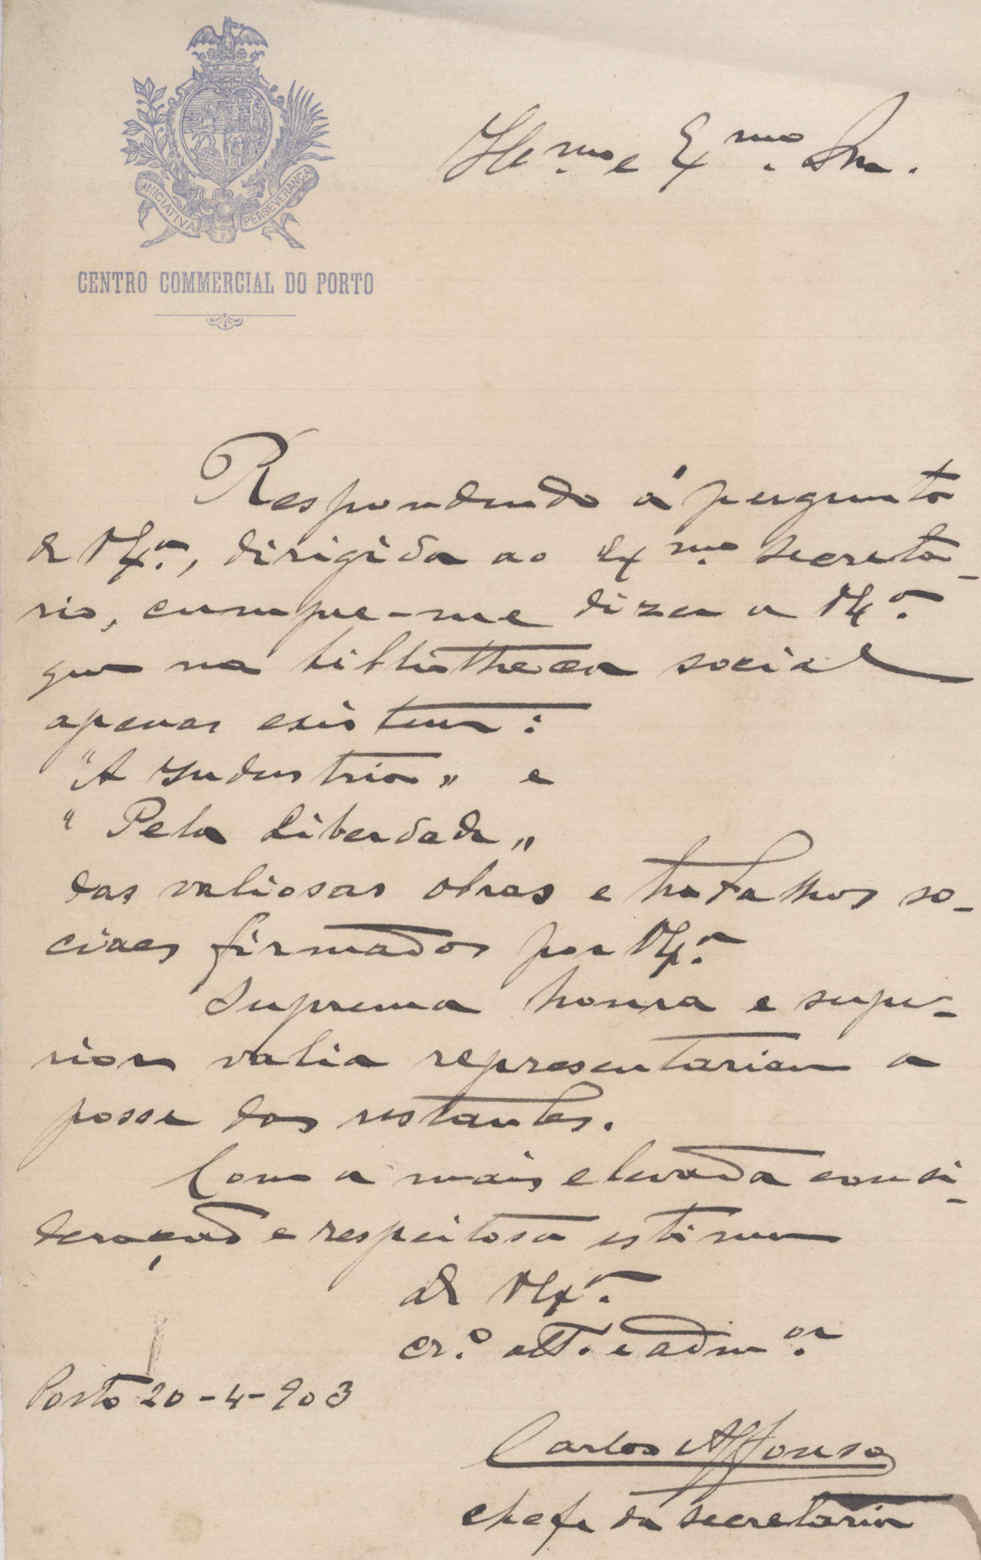 Ill.mo e Ex.mo Snr.
INICIATIVA PERSEVERANÇA
CENTRO COMMERCIAL DO PORTO
Respondendo á pergunta
de V.Ex.a, dirigida ao Ex.mo secreta-
rio, cumpre-me dizer a V.Ex.a
que na bibliotheca social
apenas existem:
"A Industria" e
"Pela Liberdade"
das valiosas obras e trabalhos so-
ciaes firmados por V.Ex.a
Suprema honra e supe-
rior valia representariam a
posse das restantes.
Com a mais elevada consi-
deração e respeitosa estima
de V.Ex.a
cr.o att. e adm.or
Porto 20-4-903
Carlos Affonso
chefe da secretaria